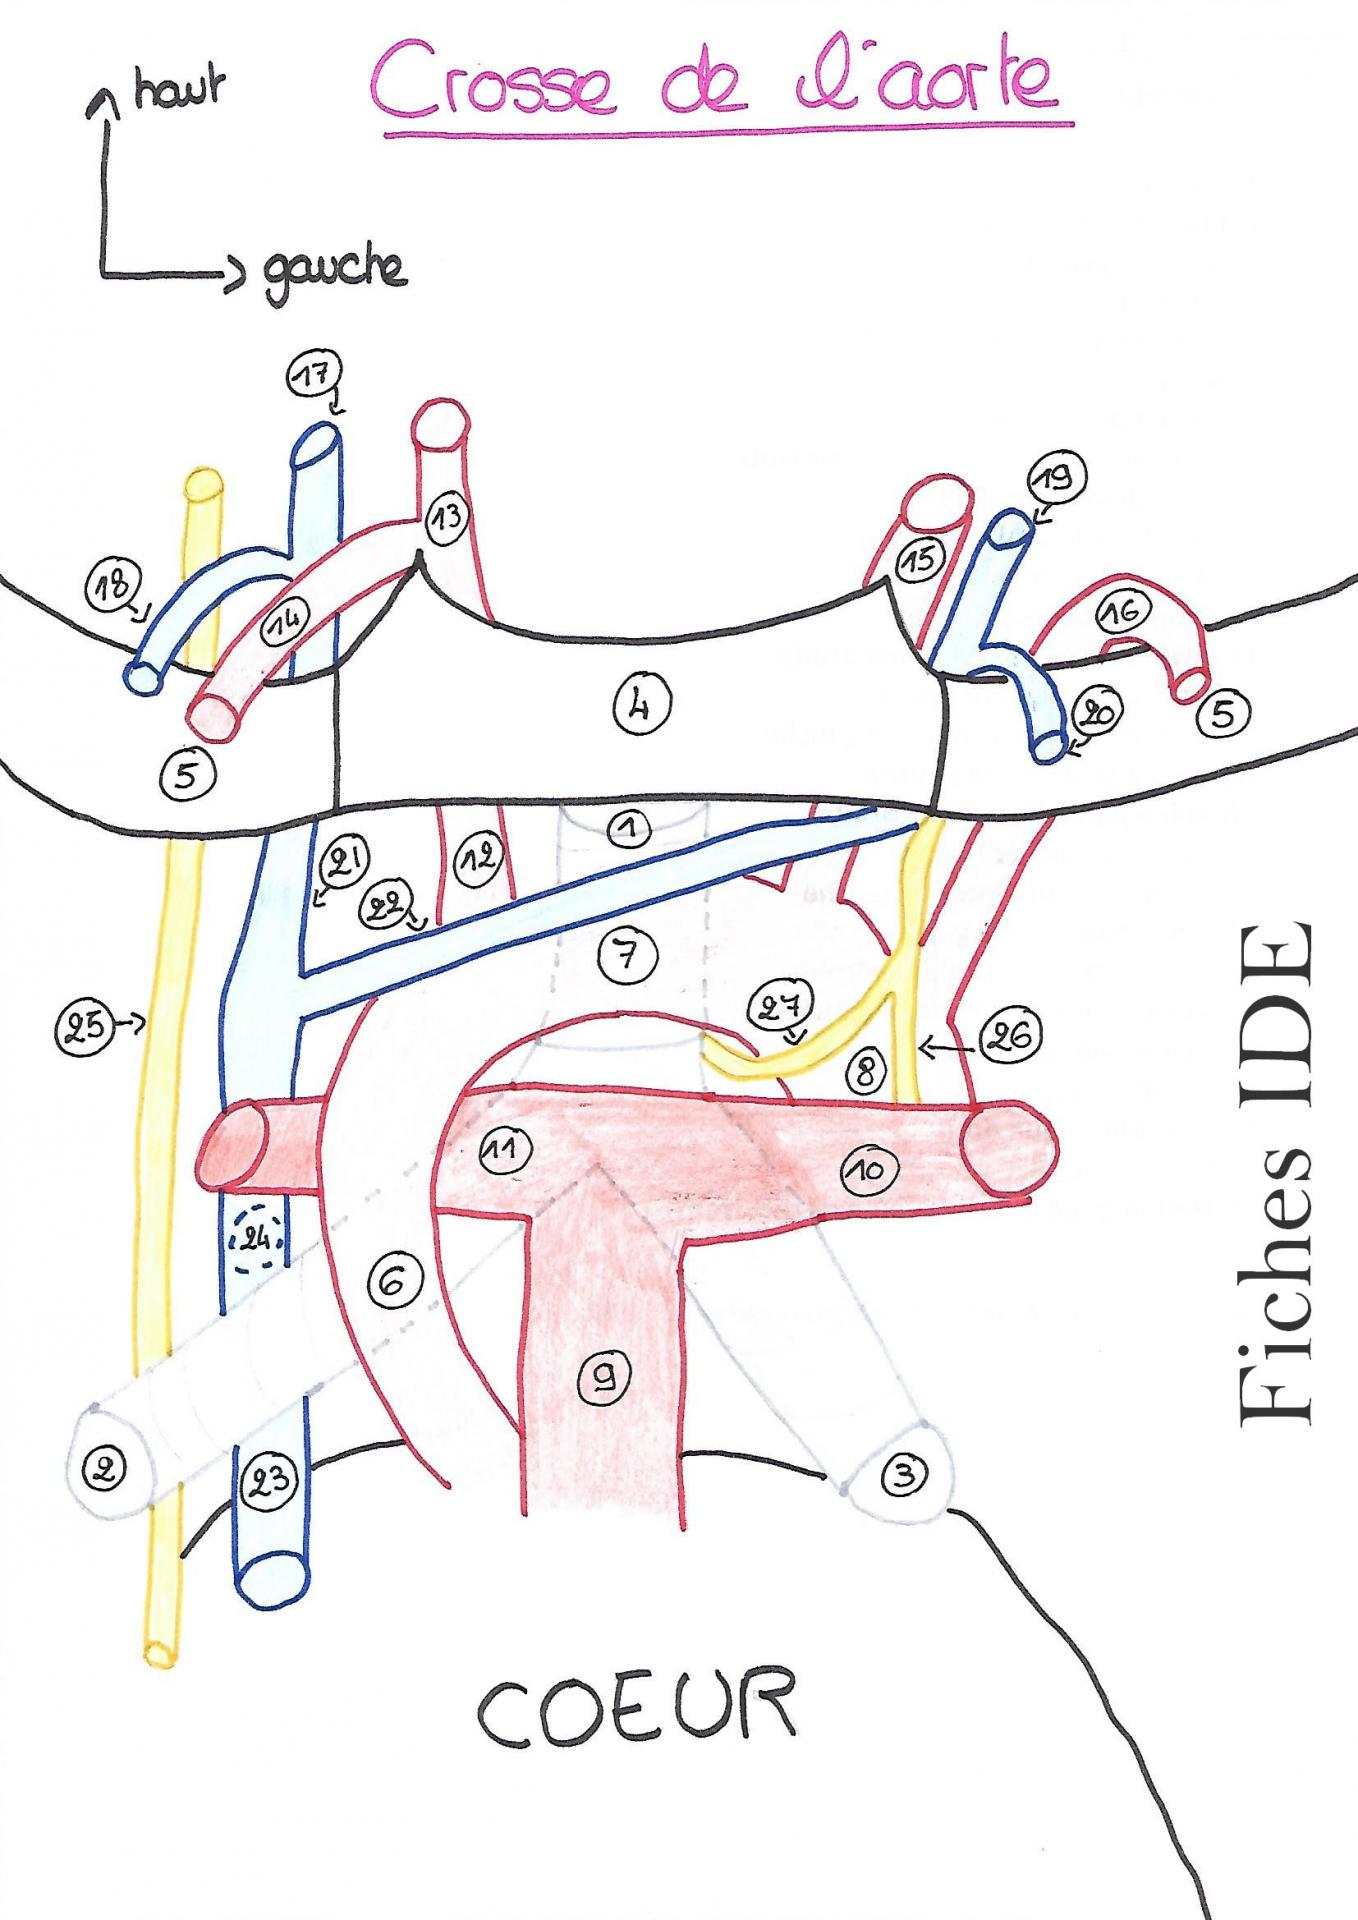 haut
Crosse de l'aorte
gauche
17
13
19
18
15
16
14
4
20
5
5
1
21
12
22
7
27
25
26
8
11
10
24
6
9
2
23
3
COEUR
Fiches IDE